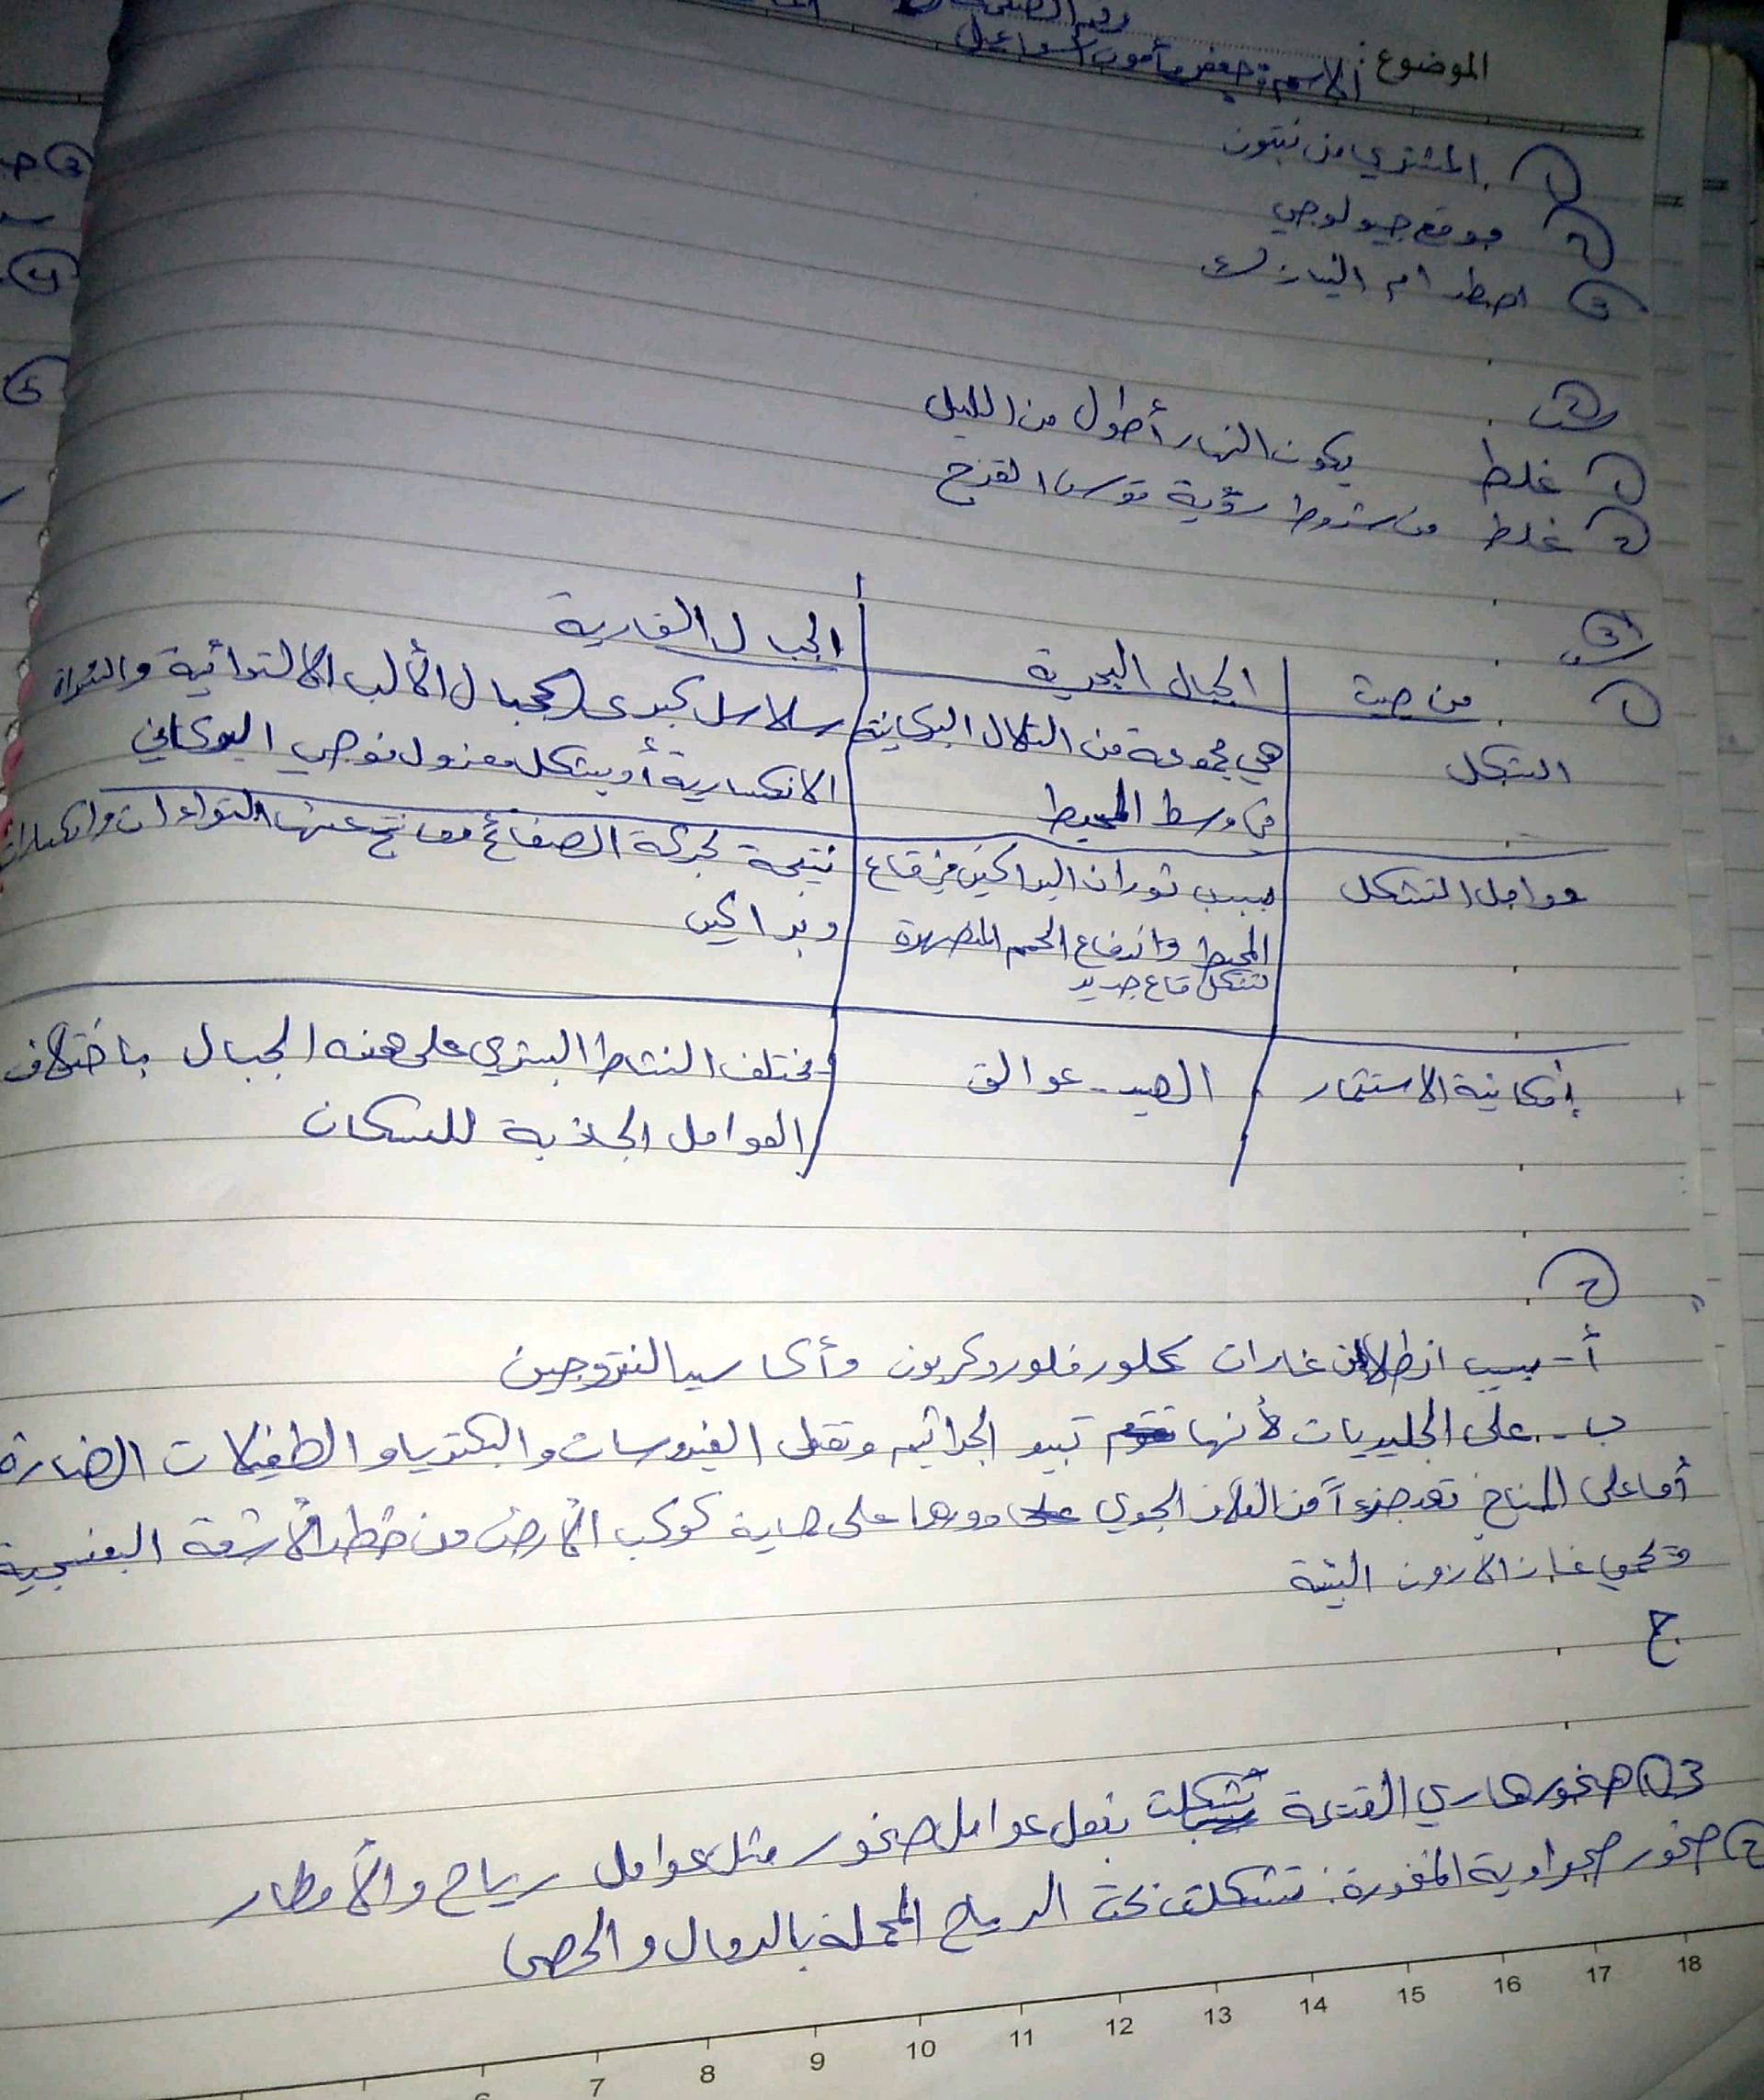 الموضوع: الاسم: جعفر مأمون اسماعيل
① المشتري من نبتون
② موقع جيولوجي
③ اصطدام النيازك
س②
① غلط يكون النهار أطول من الليل
② غلط من شروط رؤية قوس القزح
س③
① من حيث الجبال البحرية الجبال القارية
الشكل هي مجموعة من التلال البركانية سلاسل كبرى كجبال الألب الالتوائية والنجداة
في وسط المحيط الانكسارية أو بشكل معزول نموجي البركاني
عوامل التشكل بسبب ثوران البراكين في قاع نتيجة لحركة الصفائح مما نتج عنها التواءات وانكسارات
المحيط واندفاع الحمم المنصهرة وبراكين
تشكل قاع جديد
إمكانية الاستثمار الصيد - عوالق يختلف النشاط البشري على هذه الجبال باختلاف
العوامل الجاذبة للسكان
②
أ- بسبب انطلاق غازات كلور فلور وكربون وأكاسيد النتروجين
ب- على الجليديات لأنها تبيد الجراثيم وتقتل الفيروسات والبكتريا والطفيلات الضارة
أما على المناخ تعد جزءاً من الغلاف الجوي دورها على حماية كوكب الأرض من خطر الأشعة البنفسجية
وتحمي غاز الازون البيئة
ج
3 ① صخور هاري القتمة تشكلت بفعل عوامل صخور مثل عوامل رياح والأمطار
② صخور صحراوية المخورة: تشكلت نحت الرياح المحملة بالرمال والحصى
6 7 8 9 10 11 12 13 14 15 16 17 18